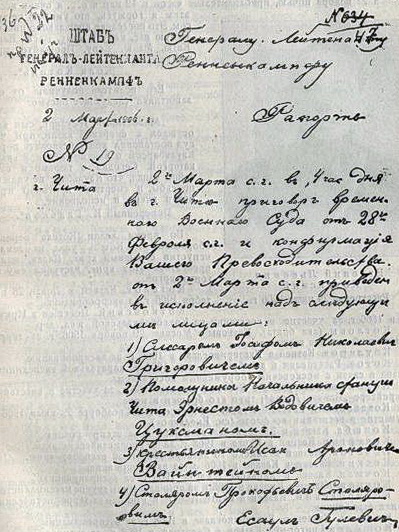 № 634
ШТАБЪ
ГЕНЕРАЛ-ЛЕЙТЕНАНТА
РЕННЕНКАМПФЪ
Генералу-Лейтенанту
Ренненкампфу
2 Марта 1906 г.
Рапортъ
№ 19
г. Чита
2го Марта с.г. въ 4 час дня
въ г. Читѣ приговоръ времен
наго Военнаго Суда отъ 28го
Февраля с.г. и конфирмація
Вашего Превосходительства
отъ 2го Марта с.г. приведенъ
въ исполненіе надъ слѣдующи
ми лицами:
1) Слесаремъ Іосифомъ Николаевич
Григоровичемъ
2) Помощникъ Начальника станціи
Чита Эрнестомъ Видовичемъ
Цуксманомъ
3) крестьяниномъ Исай Ароновичем
Вайнштейномъ
4) Столяромъ Прокофьевичъ Столяро-
вымъ
Есаулъ Гулевичъ